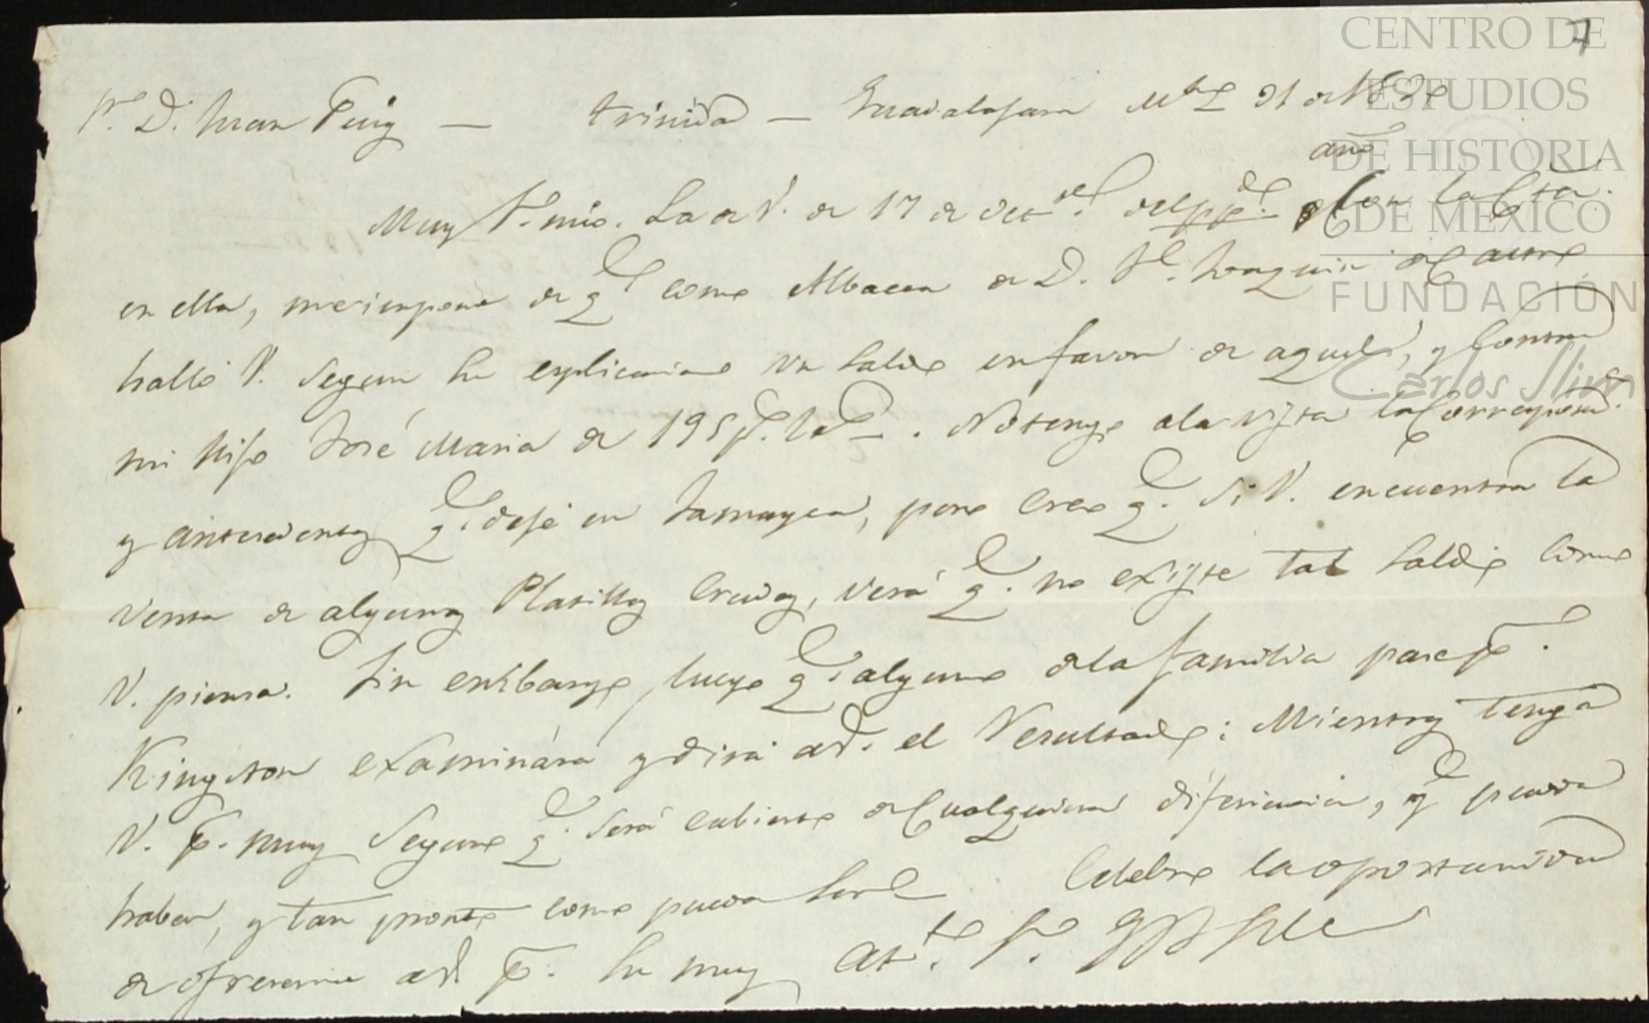 7
Sr. D. Juan Puig — Trinidad — Guadalajara 31 de
año
Muy Sr. mio. La de V. de 17 de del pp.do con la Cta.
en ella, me impone de q.e como Albacea de D. Joaquin de
halló V. segun su explicacion un saldo en favor de aquel, y contra
mi hijo José Maria de 195 p.s No tengo a la vista la Correspond.a
y antecedentes q.e dejé en Jamayca, pero creo q.e si V. encuentra la
venta de algunas Platillas Crudas, verá q.e no existe tal saldo como
V. piensa. Sin enbargo luego q.e alguno de la familia pase p.a
Kingston examinára y dirá a V. el Resultado: Mientras tenga
V. p.r muy seguro q.e será cubierto de Cualquiera diferiencia, q.e pueda
haber, y tan pronto como pueda ser. Celebro la oportunidad
de ofrecerme a V. p.r su muy at.to S.
CENTRO DE
ESTUDIOS
DE HISTORIA
DE MÉXICO
FUNDACIÓN
Carlos Slim